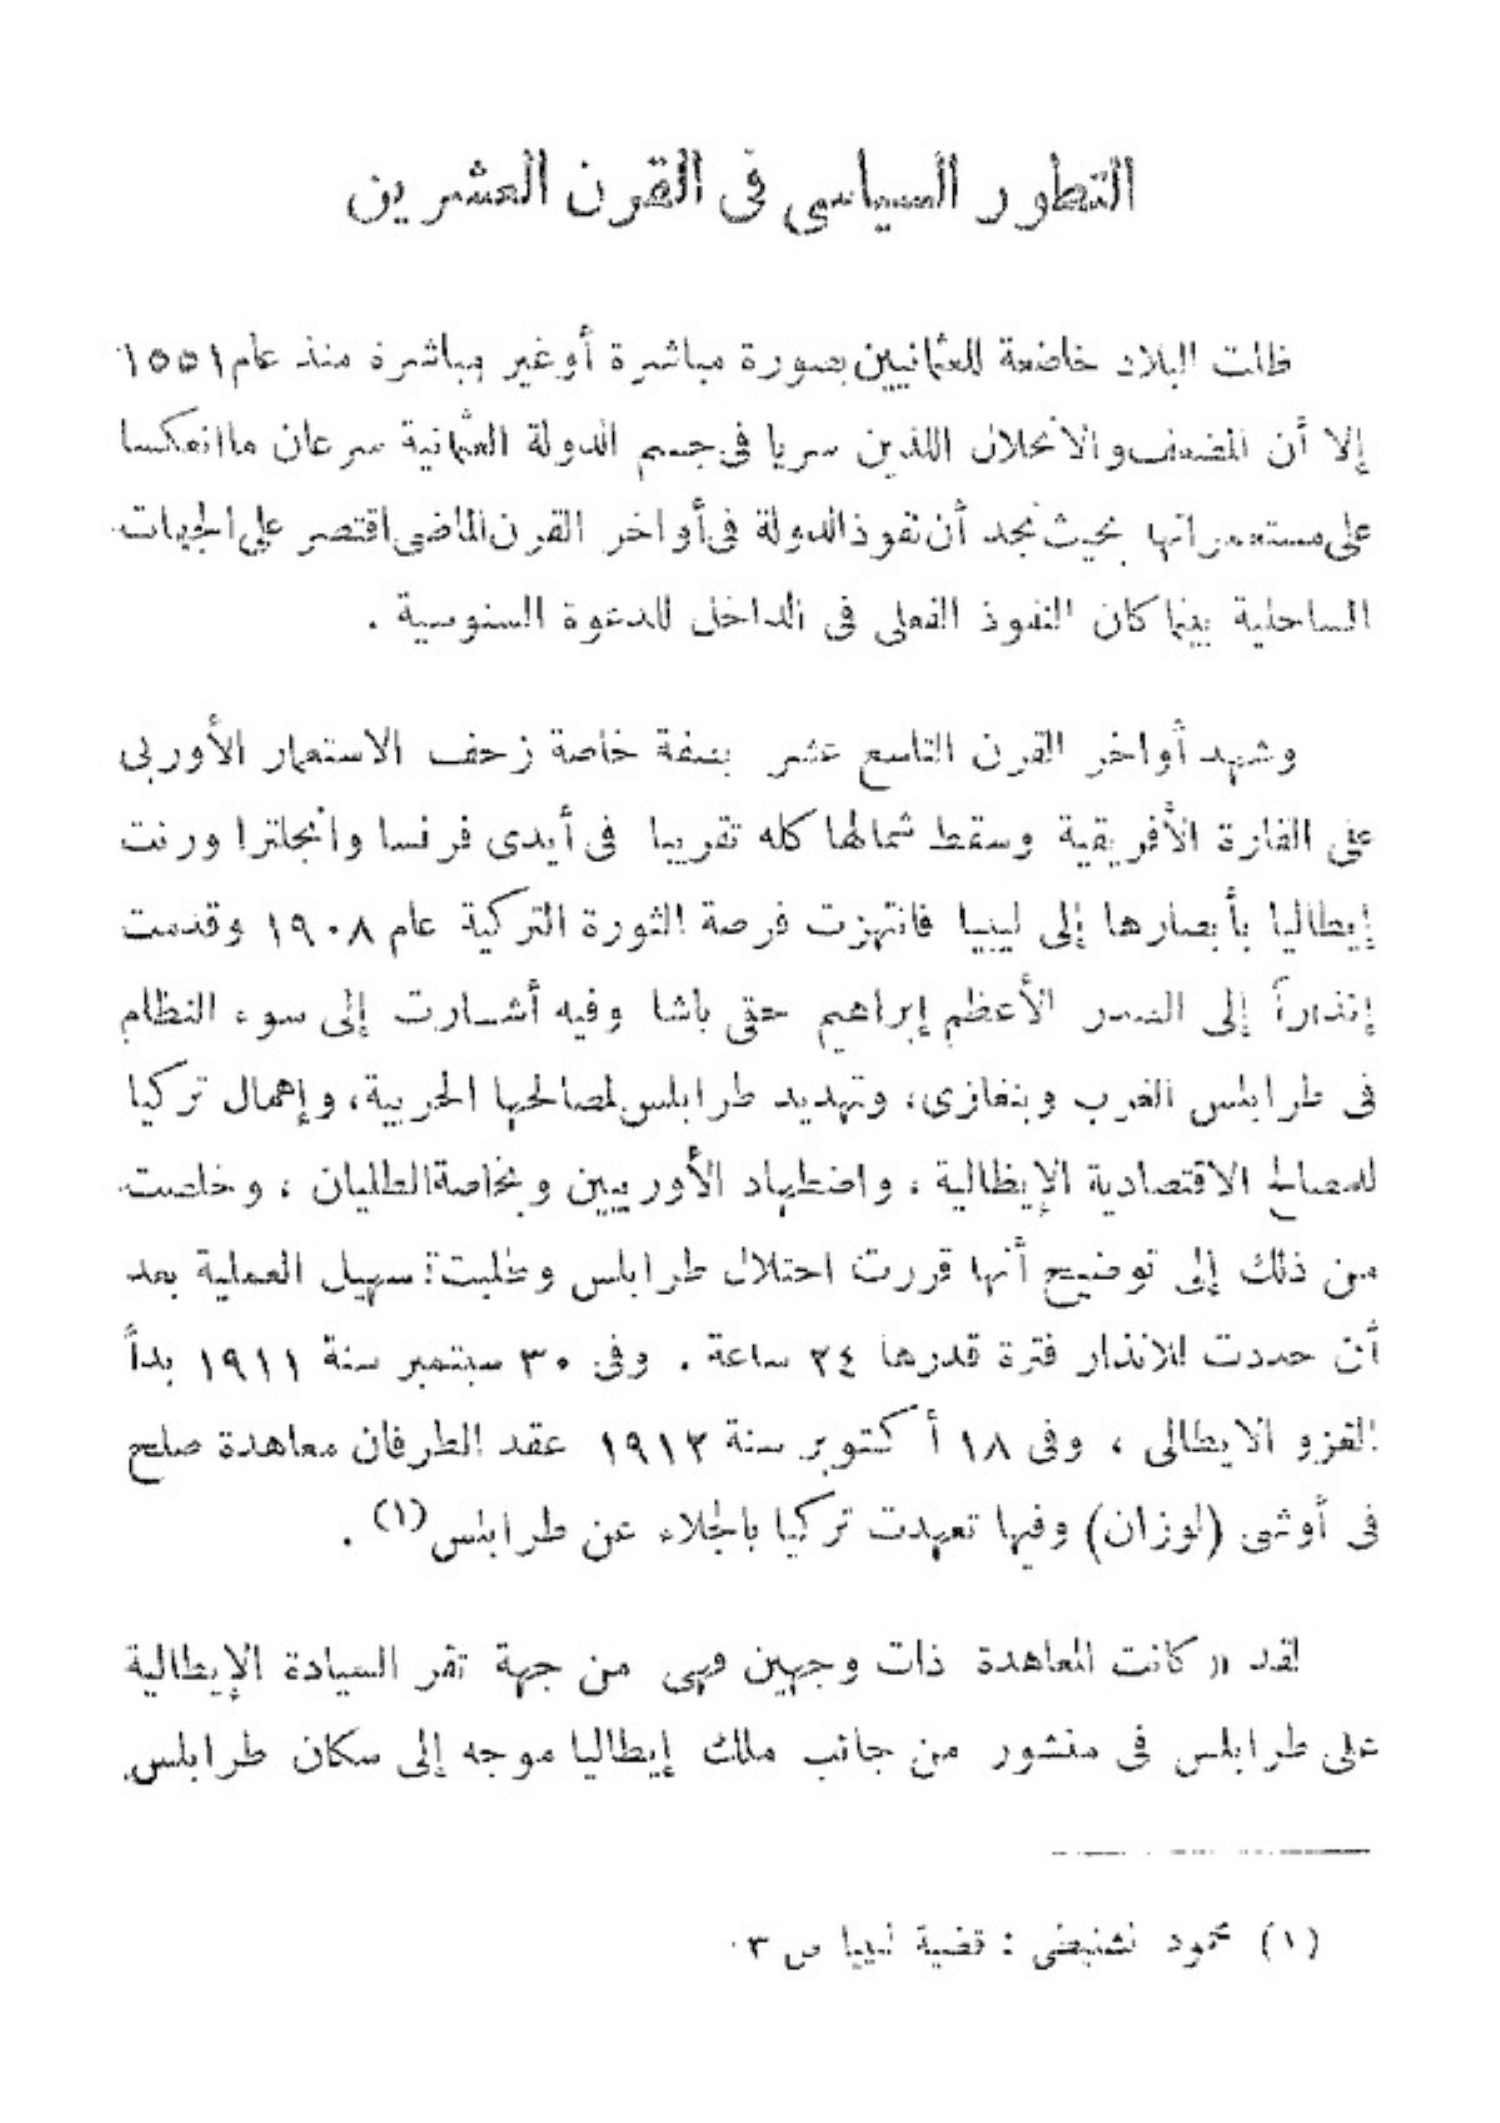 التطور السياسى فى القرن العشرين
ظلت البلاد خاضعة للعثمانيين بصورة مباشرة أو غير مباشرة منذ عام ١٥٥١
إلا أن الضعف والانحلال اللذين سريا فى جسم الدولة العثمانية سرعان ما انعكسا
على مستعمراتها بحيث نجد أن نفوذ الدولة فى أواخر القرن الماضى اقتصر على الجهات
الساحلية بينما كان النفوذ الفعلى فى الداخل للدعوة السنوسية .
وشهد أواخر القرن التاسع عشر بصفة خاصة زحف الاستعمار الأوربى
على القارة الأفريقية وسقط شمالها كله تقريبا فى أيدى فرنسا وانجلترا ورنت
إيطاليا بأبصارها إلى ليبيا فانتهزت فرصة الثورة التركية عام ١٩٠٨ وقدمت
إنذاراً إلى الصدر الأعظم إبراهيم حقى باشا وفيه أشارت إلى سوء النظام
فى طرابلس الغرب وبنغازى، وتهديد طرابلس لمصالحها الحربية، وإهمال تركيا
للمصالح الاقتصادية الإيطالية ، واضطهاد الأوربيين وبخاصة الطليان ، وخلصت
من ذلك إلى توضيح أنها قررت احتلال طرابلس وطلبت تسهيل العملية بعد
أن حددت للانذار فترة قدرها ٢٤ ساعة . وفى ٣٠ سبتمبر سنة ١٩١١ بدأ
الغزو الايطالى ، وفى ١٨ أكتوبر سنة ١٩١٢ عقد الطرفان معاهدة صلح
فى أوشى (لوزان) وفيها تعهدت تركيا بالجلاء عن طرابلس (١) .
لقد « كانت المعاهدة ذات وجهين فهى من جهة تقر السيادة الإيطالية
على طرابلس فى منشور من جانب ملك إيطاليا موجه إلى سكان طرابلس
(١) محمود : قضية ليبيا ص ٣